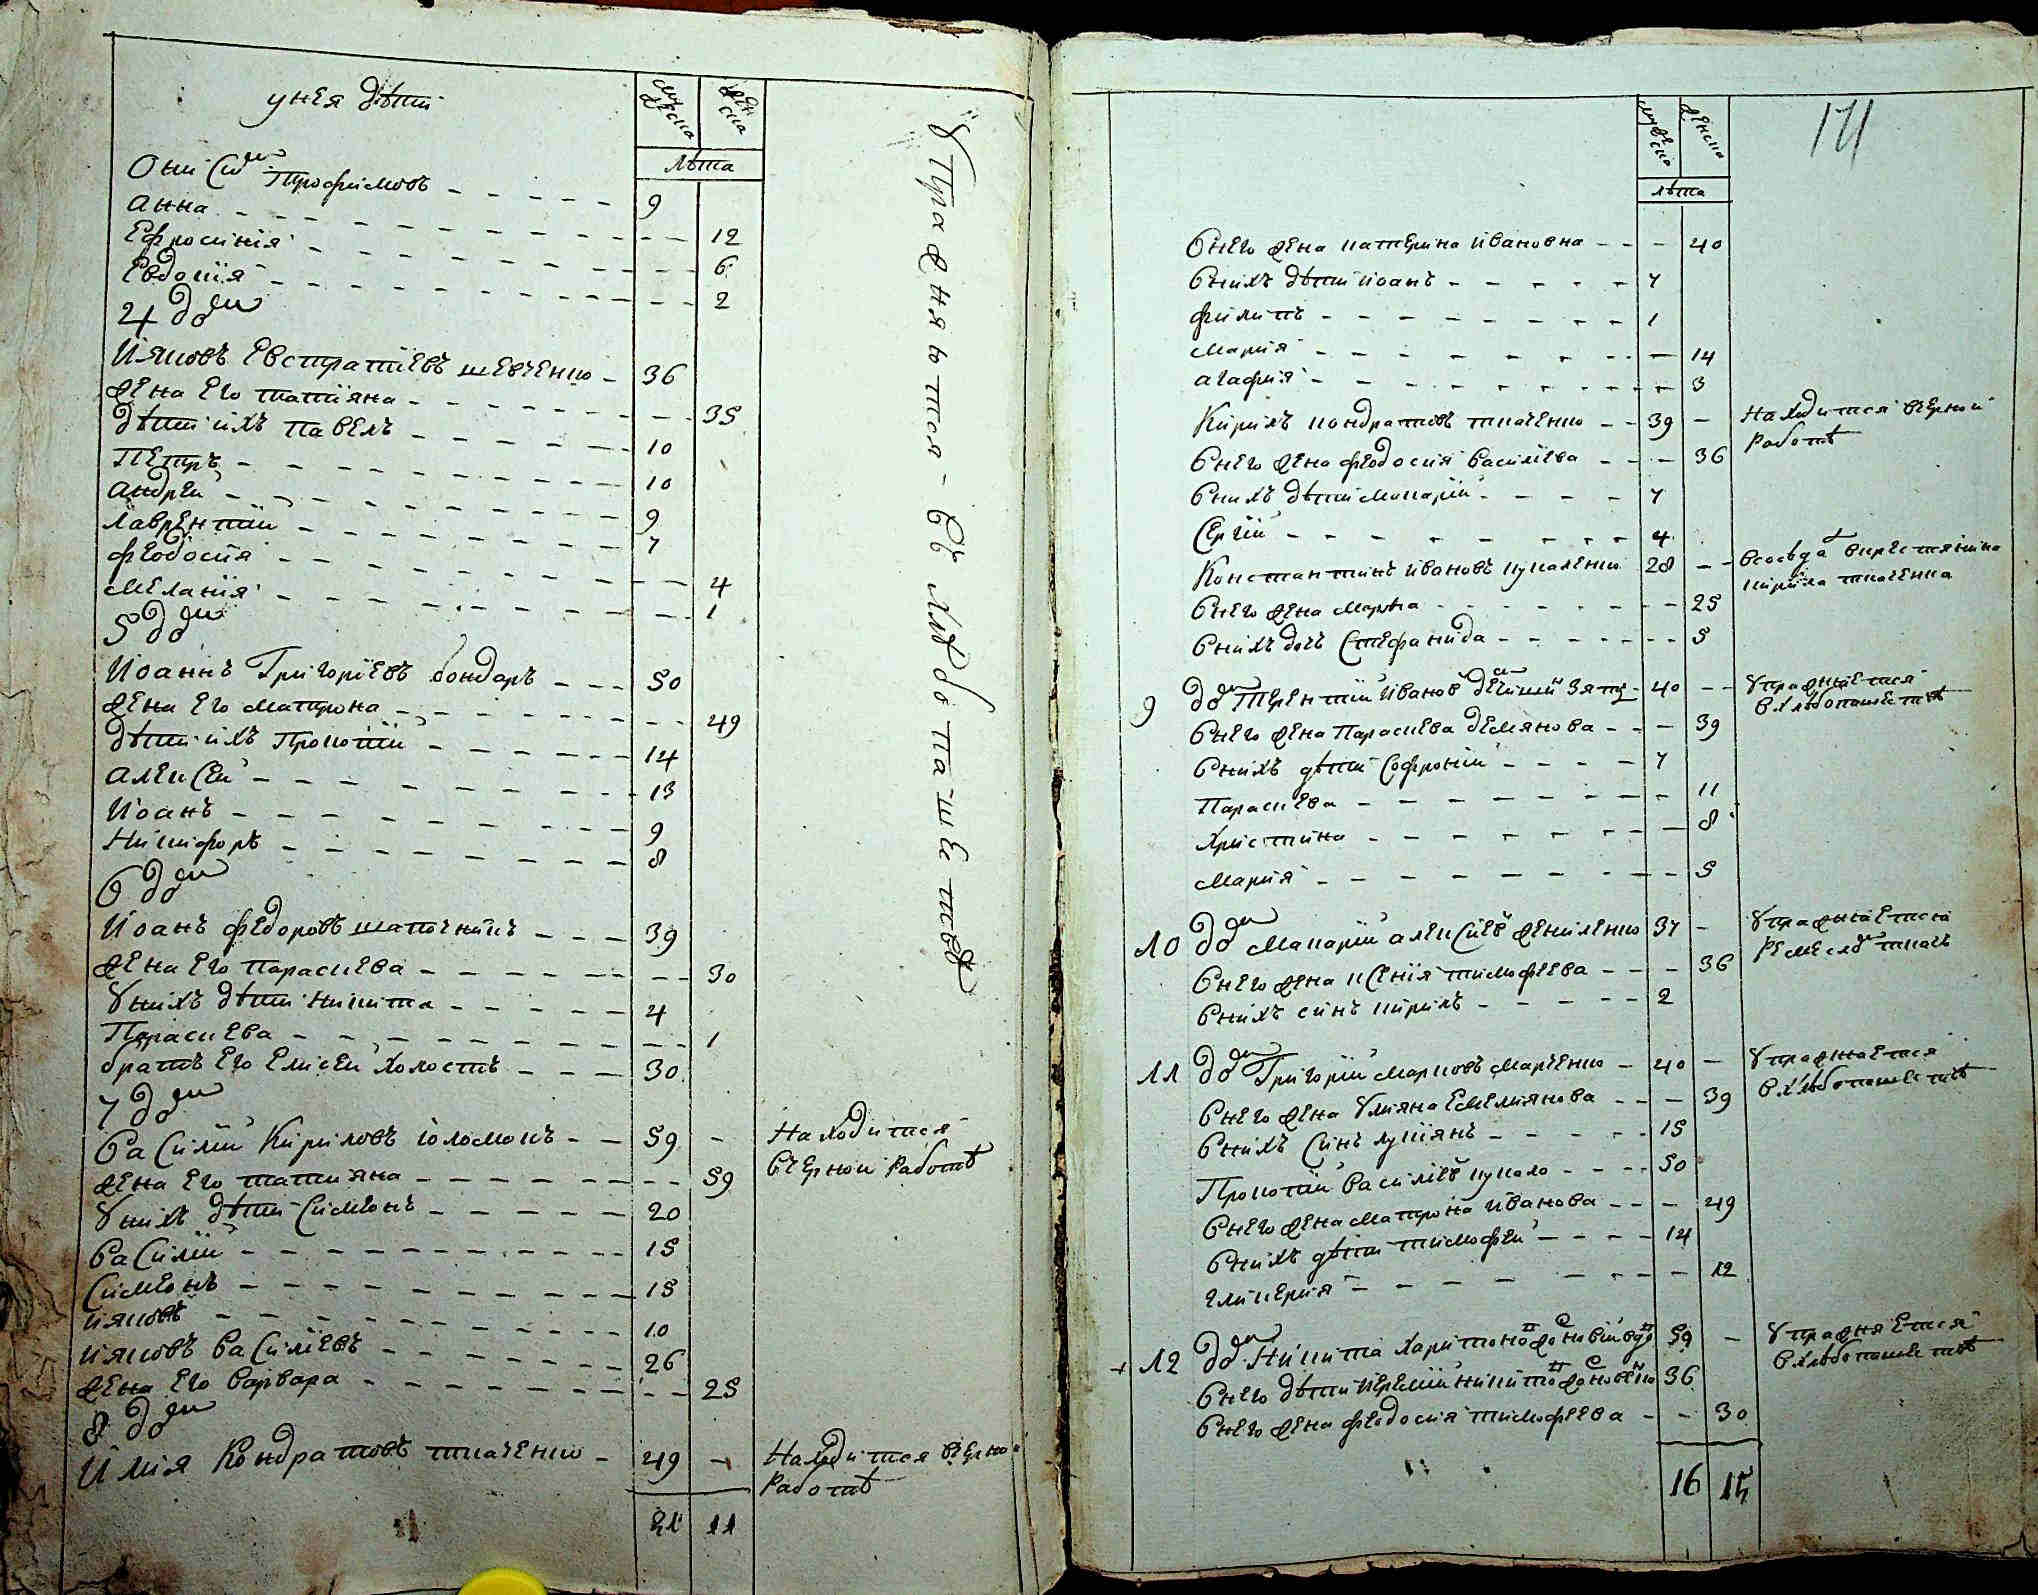 унея дѣти
мужеска
женска
лѣта
Онисим Трофимовъ 9
Анна 12
Ефросинїя 6
Евдокїя 2
4 дом
Ияковъ Евстратїевъ шевченко 36
жена его татияна 35
дѣти ихъ павелъ 10
Петръ 10
андрей 9
лаврентий 7
феодосїя 4
меланїя 1
5 дом
Иоаннъ Григорїевъ бондаръ 50
жена его матрона 49
дѣти ихъ Прокопїй 14
алексей 13
Иоанъ 9
Никифоръ 8
6 дом
Иоанъ федоровъ шапочникъ 39
жена его параскева 30
Унихъ дѣти никита 4
Параскева 1
братъ его елисей холостъ 30
7 дом
Василїй Кириловъ 59
жена его татияна 59
Унихъ дѣти Симеонъ 20
Василїй 15
Симеонъ 15
ияковъ 10
ияковъ Василїевъ 26
жена его варвара 25
8 дом
Илия Кондратовъ ткаченко 49
21 11
Находится
вчерной работѣ
Находится вчерно
работѣ
Упражняются въ хлѣбопашествѣ
мужеска
женска
171
лѣта
Внего жена катерина ивановна 40
Внихъ дѣти иоанъ 7
филипъ 1
мария 14
агафия 3
Кирилъ кондратовъ ткаченко 39 Находится вчерной
работѣ
Внего жена феодосия василїева 36
Внихъ дѣти макарїй 7
Сергїй 4
Константинъ ивановъ 28 всосѣда вкрестянина
кирила ткаченка
Внего жена марфа 25
Внихъ дочъ Стефанида 5
9 дом Терентий Иванов зять 40 Упражняется
вхлѣбопашествѣ
Внего жена Параскева демянова 39
Внихъ дѣти Софронїй 7
Параскева 11
Христина 8
Мария 5
10 дом Макарїй алексїев 37 Упражняется
ремеслом ткач
Внего жена ксенїя тимофеева 36
Внихъ синъ кирилъ 2
11 дом Григорїй марковъ марченко 40 Упражняется
вхлѣбопашествѣ
Внего жена Улияна Емелиянова 39
Внихъ Синъ лукиянъ 15
Прокопїй Василїевъ 50
Внего жена матрона Иванова 49
Внихъ дѣти тимофей 14
гликерия 12
12 дом Никита 59 Упражняется
вхлѣбопашествѣ
Внего дѣти 36
Внего жена феодосия тимофеева 30
16 15